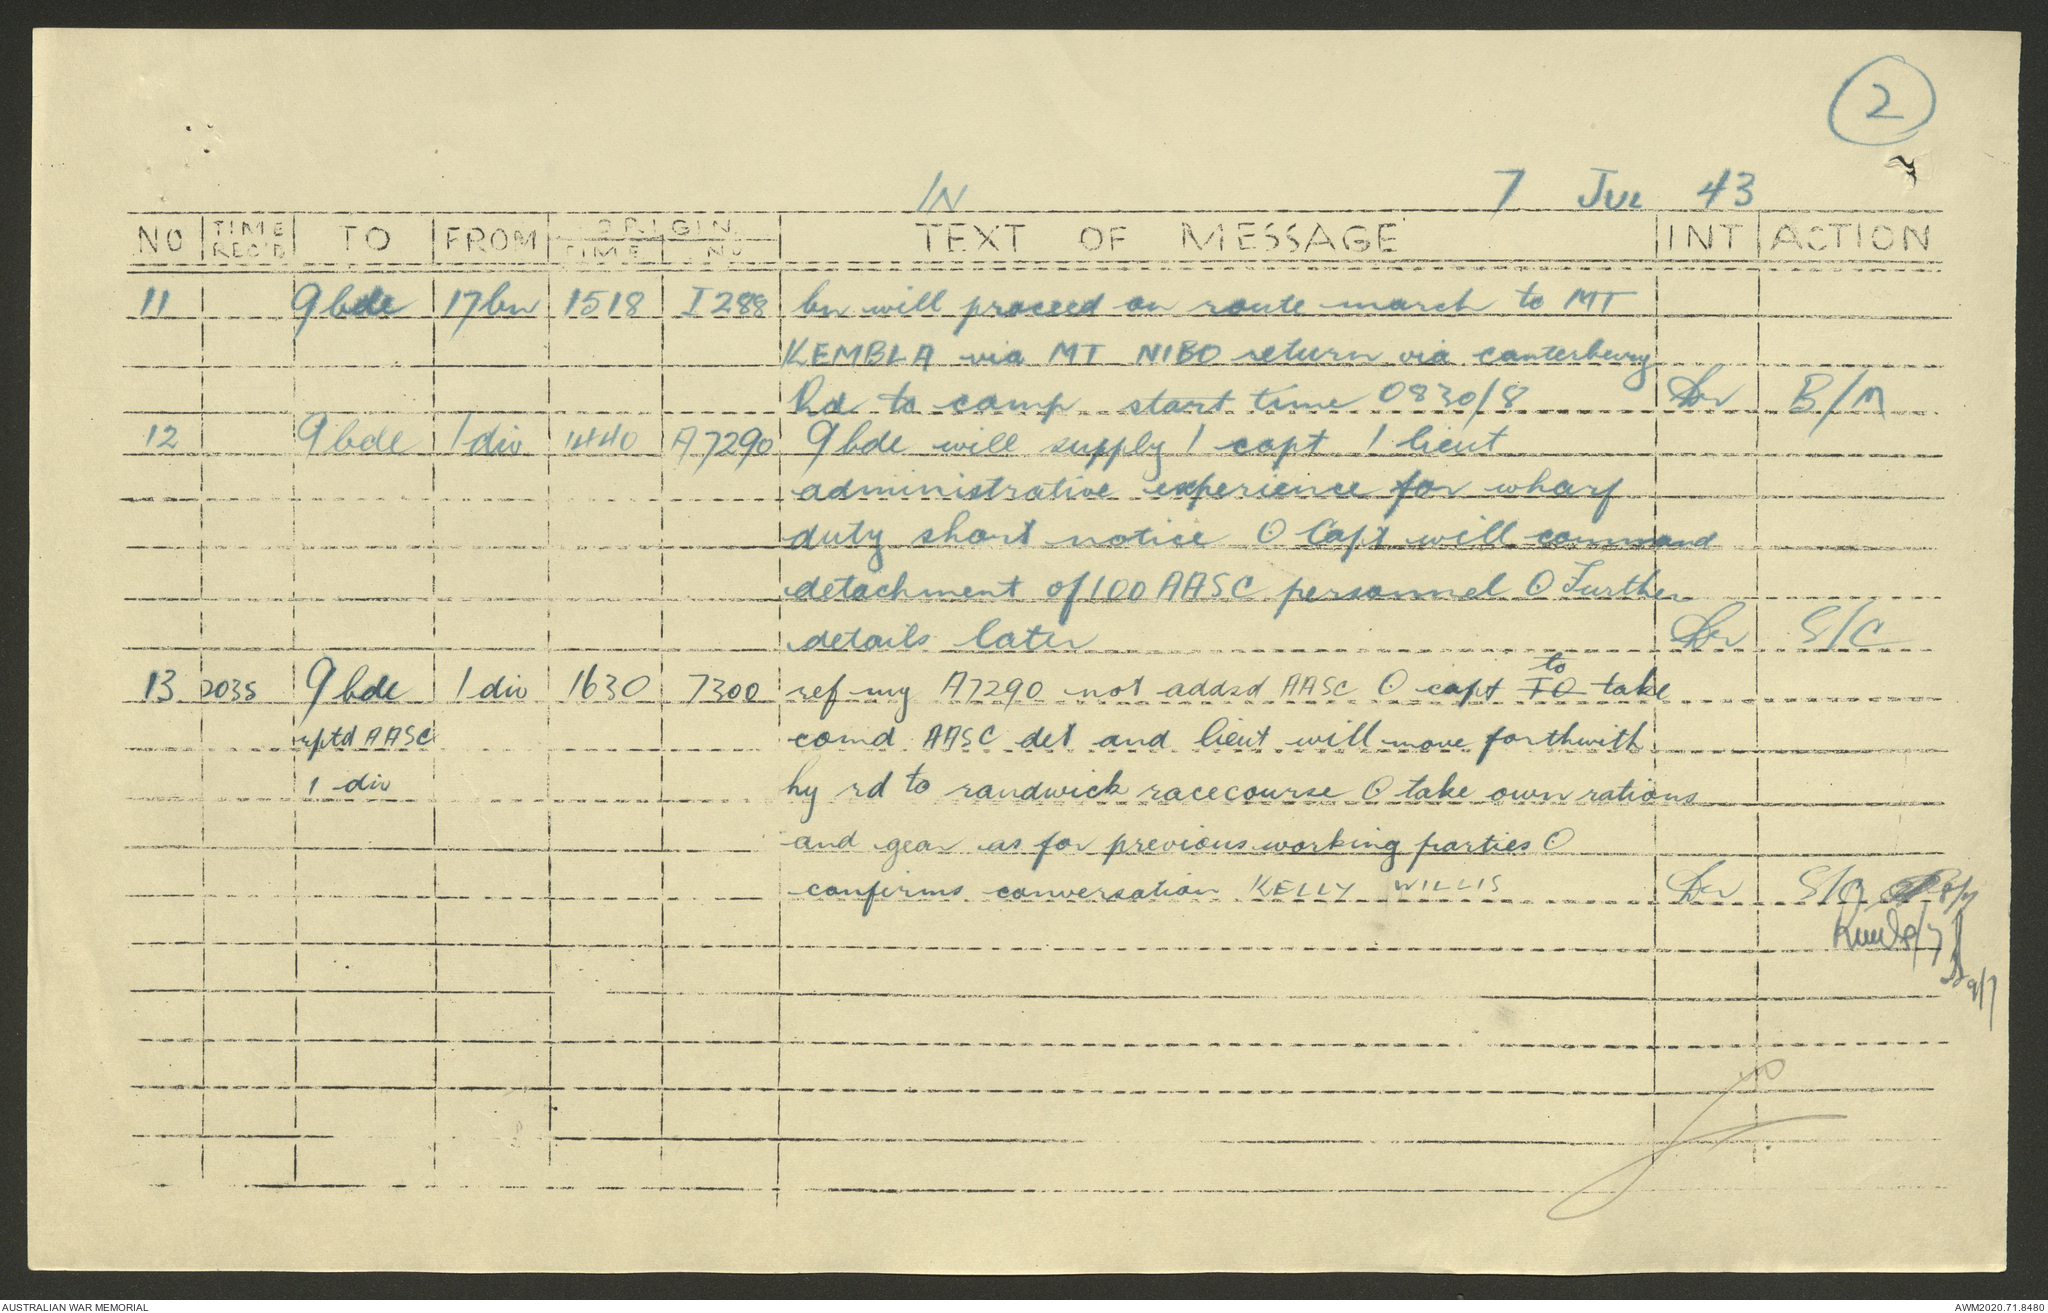 2
IN 7 JUL 43
NO TIME REC'D TO FROM ORIGIN TIME NO TEXT OF MESSAGE INT ACTION
11 9 bde 17 bn 1518 I288 bn will proceed on route march to MT
KEMBLA via MT NIBO return via canterbury
Rd to camp start time 0830/8 B/M
12 9 bde 1 div 1440 A7290 9 bde will supply 1 capt 1 lieut
administrative experience for wharf
duty short notice O Capt will command
detachment of 100 AASC personnel O Further
details later S/C
13 2035 9 bde 1 div 1630 7300 ref my A7290 not addsd AASC O capt to TO take
rptd AASC comd AASC det and lieut will move forthwith
1 div by rd to randwick racecourse O take own rations
and gear as for previous working parties O
confirms conversation KELLY WILLIS S/C 8/7
8/7
9/7
AUSTRALIAN WAR MEMORIAL AWM2020.71.8480